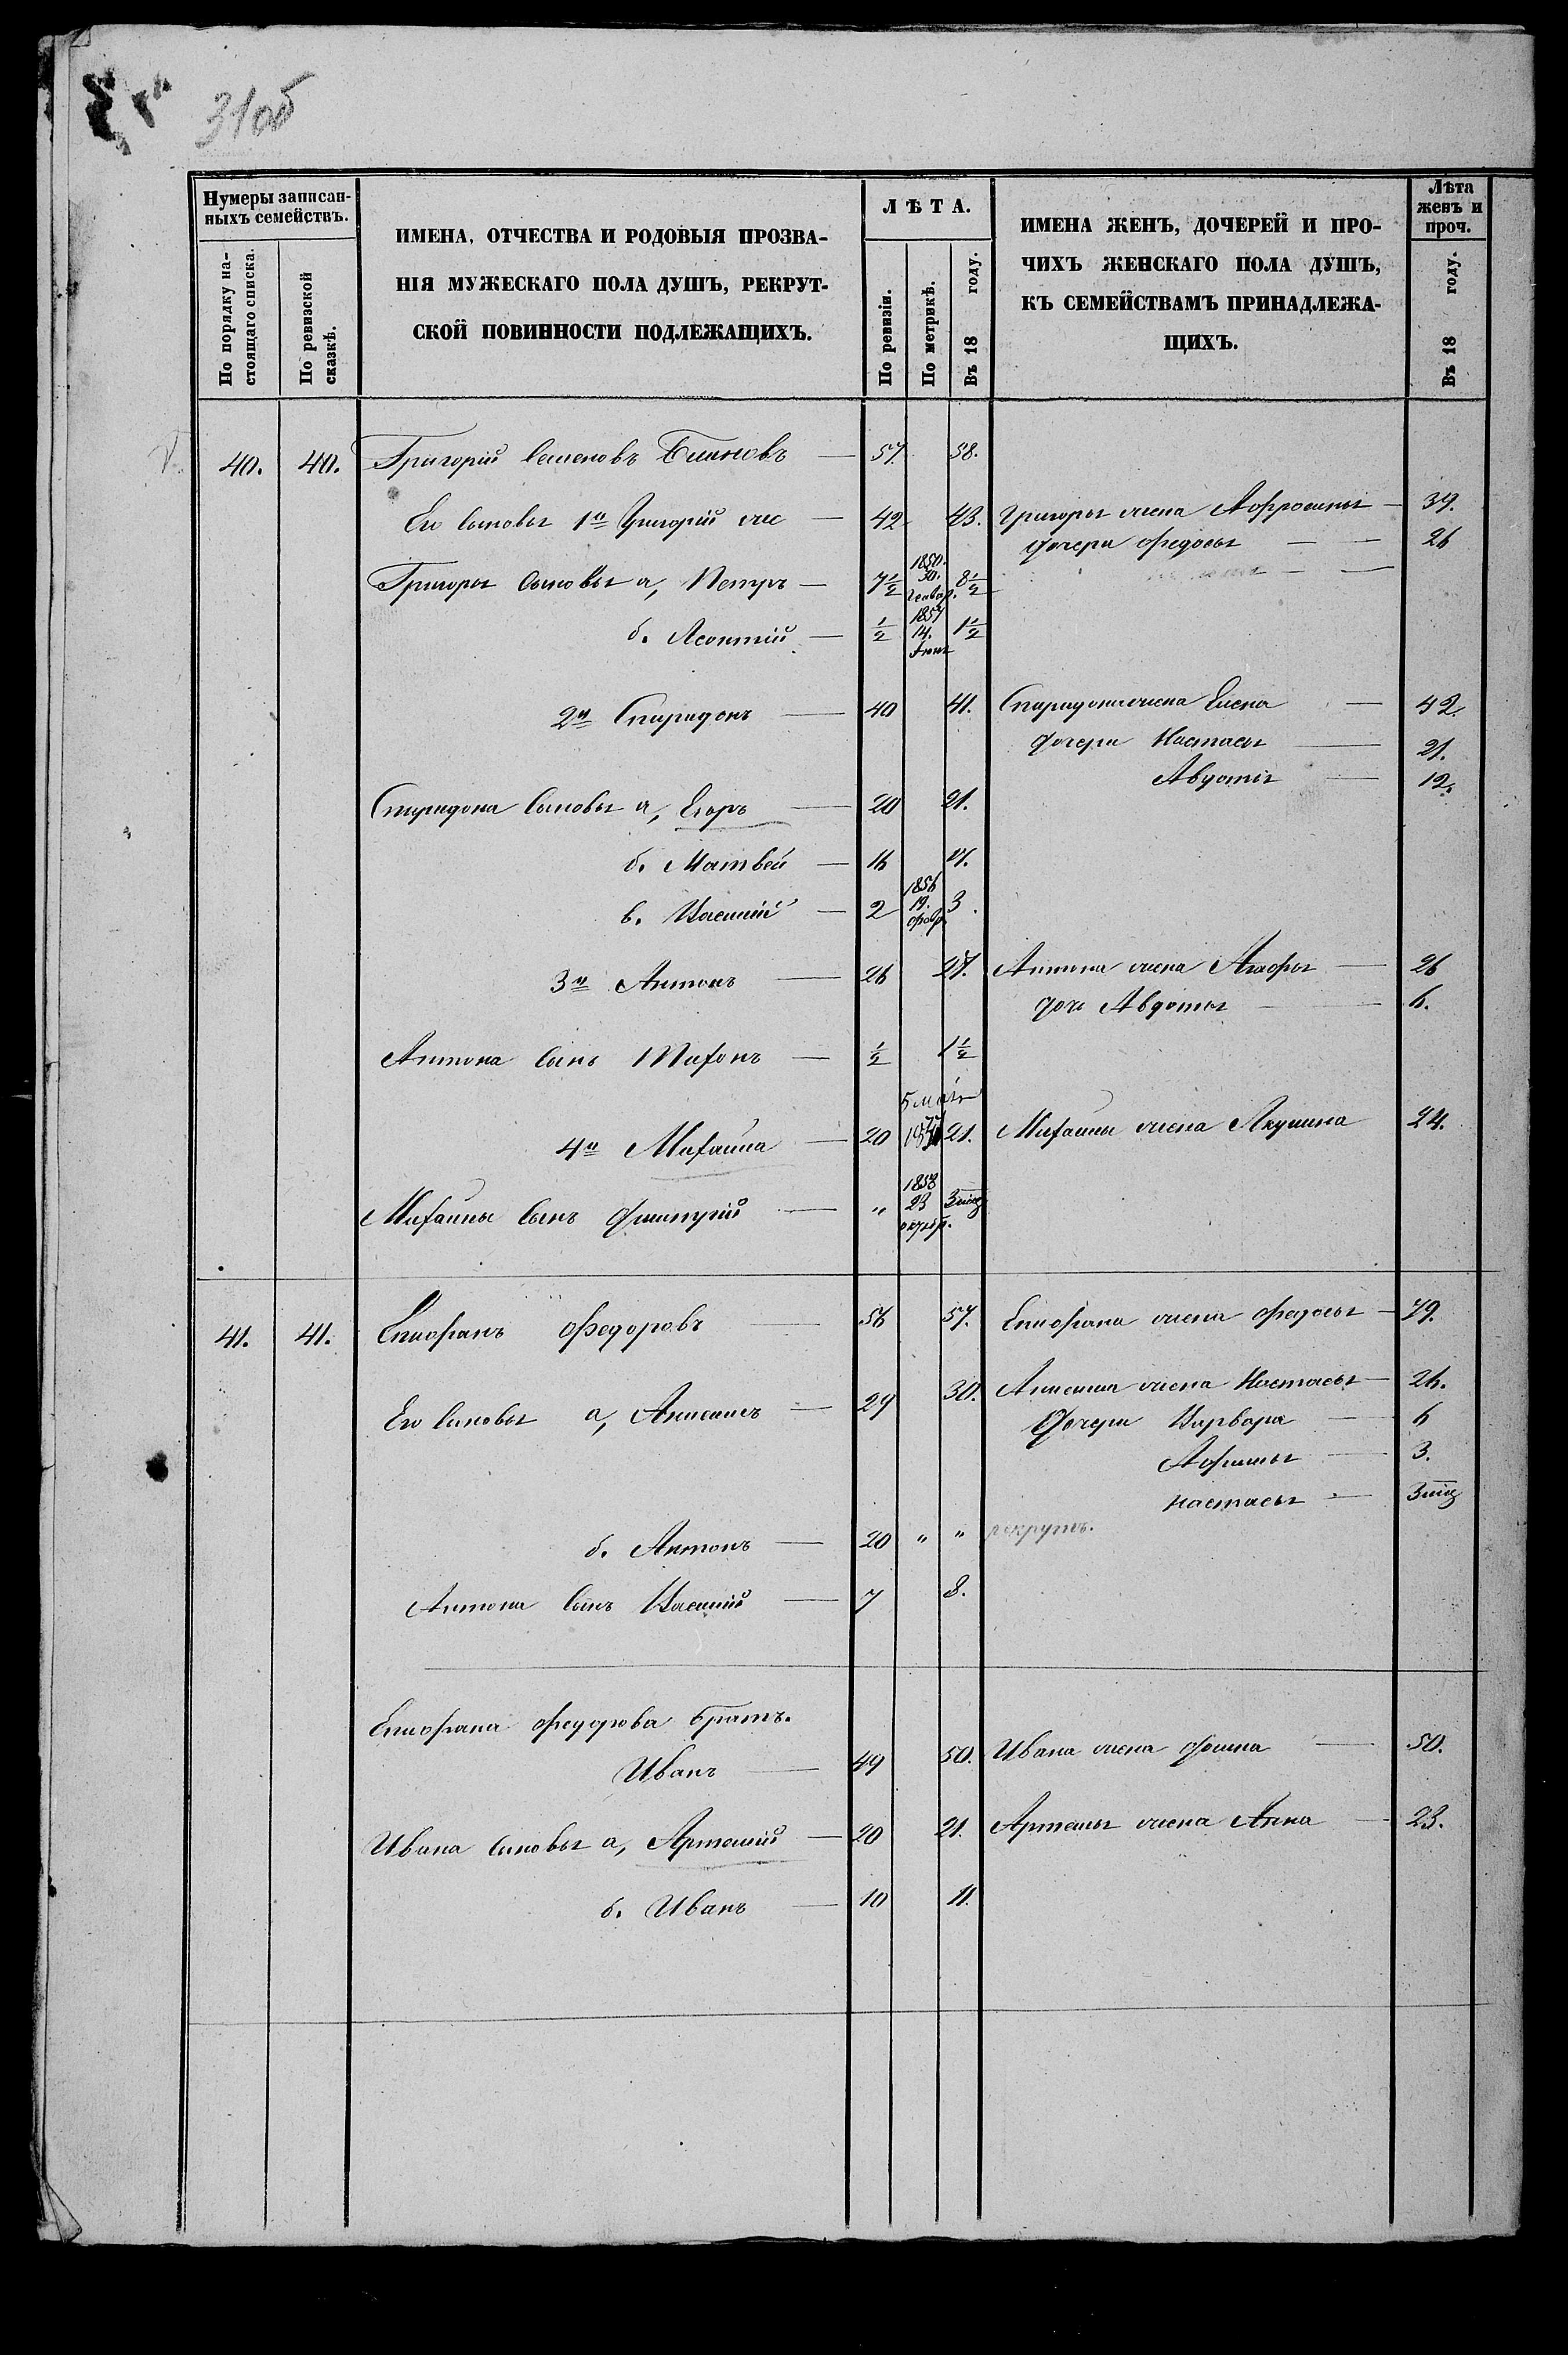 31об
Нумеры записан-
ныхъ семействъ.
По порядку на-
стоящаго списка.
По ревизской
сказкѣ.
ИМЕНА, ОТЧЕСТВА И РОДОВЫЯ ПРОЗВА-
НІЯ МУЖЕСКАГО ПОЛА ДУШЪ, РЕКРУТ-
СКОЙ ПОВИННОСТИ ПОДЛЕЖАЩИХЪ.
ЛѢТА.
По ревизіи.
По метрикѣ.
Въ 18 году.
ИМЕНА ЖЕНЪ, ДОЧЕРЕЙ И ПРО-
ЧИХЪ ЖЕНСКАГО ПОЛА ДУШЪ,
КЪ СЕМЕЙСТВАМЪ ПРИНАДЛЕЖА-
ЩИХЪ.
Лѣта
женъ и
проч.
Въ 18 году.
40. 40. Григорій Семеновъ — 57. 58.
Его сыновья 1й Григорій — 42 43. Григорья жена Афросинья — 39.
дочери Федосья — — 26
Григорья сыновья а, Петръ — 7½ 1850. 30. Генвар. 8½
б. Леонтій — ½ 1857 14. 1½
2й Спиридонъ — 40 41. Спиридона жена Елена — 42.
дочери Настасья — 21.
Авдотія — 12.
Спиридона сыновья а, Егоръ — 20 21.
б. Матвей — 16 17.
в. Василій — 2 1856 19. февр. 3.
3й Антонъ — 26 27. Антона жена Агафья — 26
дочь Авдотья — 6.
Антона сынъ Тихонъ — ½ 1½
5 мая
4й Михайла — 20 21. Михайлы жена Акулина 24.
Михайлы сынъ Дмитрій — " 1858 23 октябр. 3 міс
41. 41. Епифанъ Федоровъ — 56 57. Епифана жена Федосья — 49.
Его сыновья а, Анисимъ — 29 30. Анисима жена Настасья — 26.
дочери Варвара — 6
Афимья — 3.
Настасья — 3 міс
б. Антонъ — 20 " " рекрутъ.
Антона сынъ Василій — 7 8.
Епифана Федорова братъ.
Иванъ — 49 50. Ивана жена — 50.
Ивана сыновья а, Артемій — 20 21. Артемья жена Анна — 23.
б. Иванъ — 10 11.